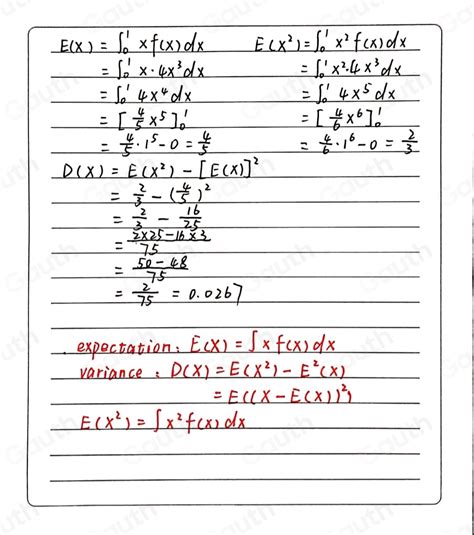 E(X) = ∫₀¹ x f(x) dx
= ∫₀¹ x · 4x³ dx
= ∫₀¹ 4x⁴ dx
= [4/5 x⁵]₀¹
= 4/5 · 1⁵ - 0 = 4/5
E(X²) = ∫₀¹ x² f(x) dx
= ∫₀¹ x² · 4x³ dx
= ∫₀¹ 4x⁵ dx
= [4/6 x⁶]₀¹
= 4/6 · 1⁶ - 0 = 2/3
D(X) = E(X²) - [E(X)]²
= 2/3 - (4/5)²
= 2/3 - 16/25
= 2×25-16×3/75
= 50-48/75
= 2/75 = 0.0267
expectation: E(X) = ∫ x f(x) dx
variance : D(X) = E(X²) - E²(X)
= E((X - E(X))²)
E(X²) = ∫ x² f(x) dx
Gauth